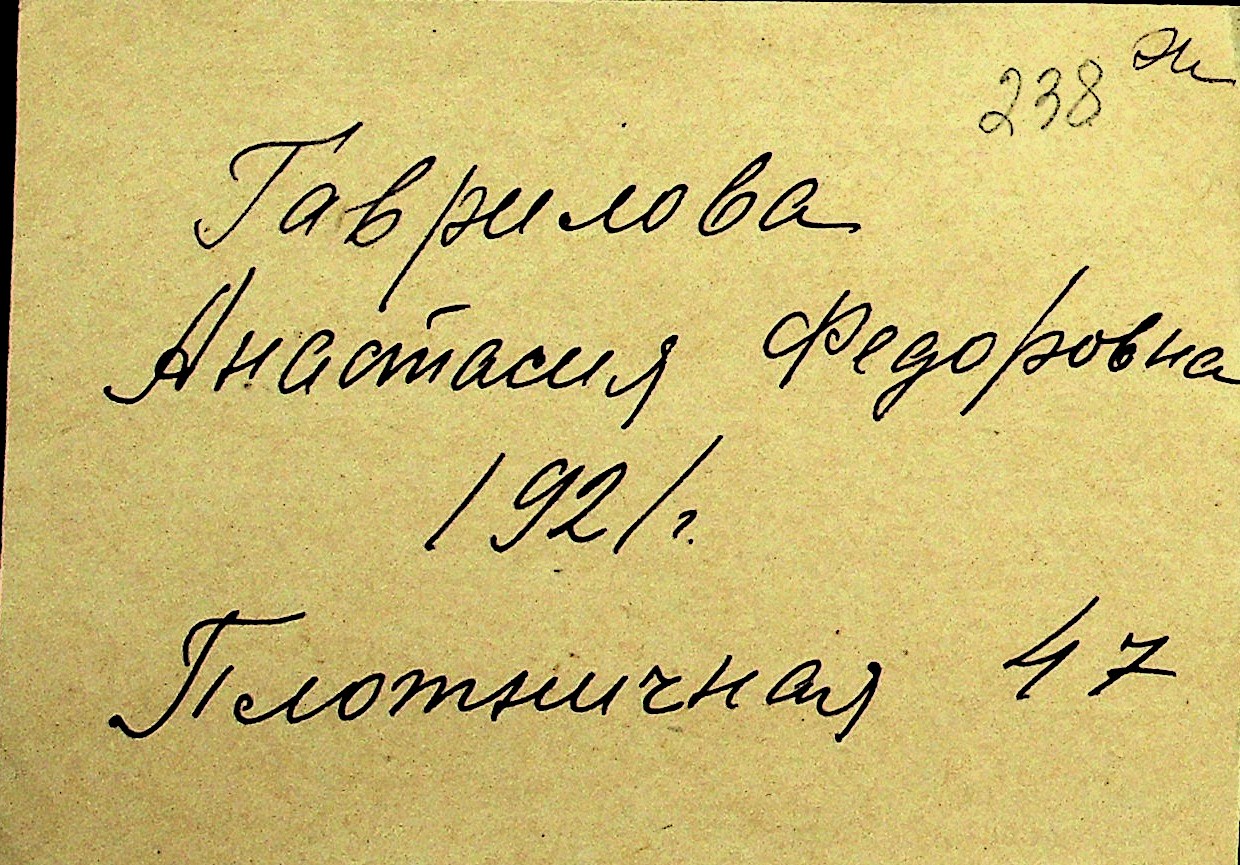 238
Гаврилова
Анастасия Федоровна
1921г.
Плотничная 47